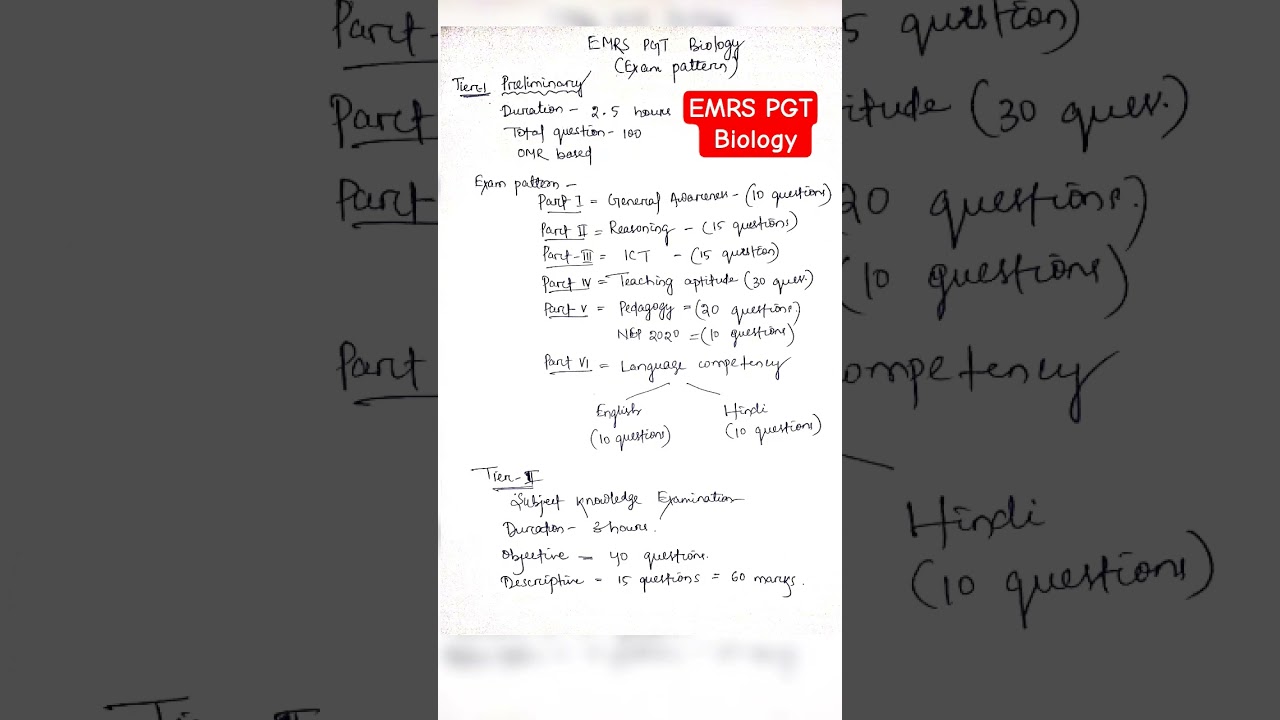 EMRS PGT Biology
(Exam pattern)
Tier-1 Preliminary
Duration - 2.5 hours
Total question - 100
OMR based
EMRS PGT
Biology
Exam pattern -
Part I = General Awareness - (10 questions)
Part II = Reasoning - (15 questions)
Part-III = ICT - (15 question)
Part IV = Teaching aptitude (30 ques.)
Part V = Pedagogy = (20 questions.)
NEP 2020 = (10 questions)
Part VI = Language competency
English Hindi
(10 questions) (10 questions)
Tier-II
Subject knowledge Examination
Duration - 3 hours.
Objective - 40 questions.
Descriptive = 15 questions = 60 marks.